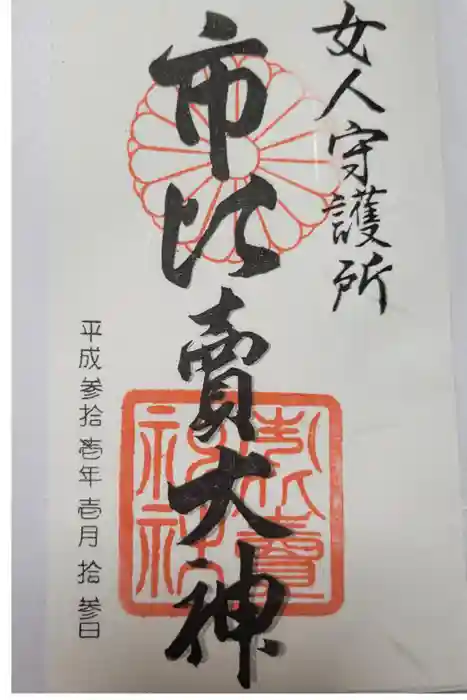 女人守護所
市比賣大神
平成参拾壱年壱月拾参日